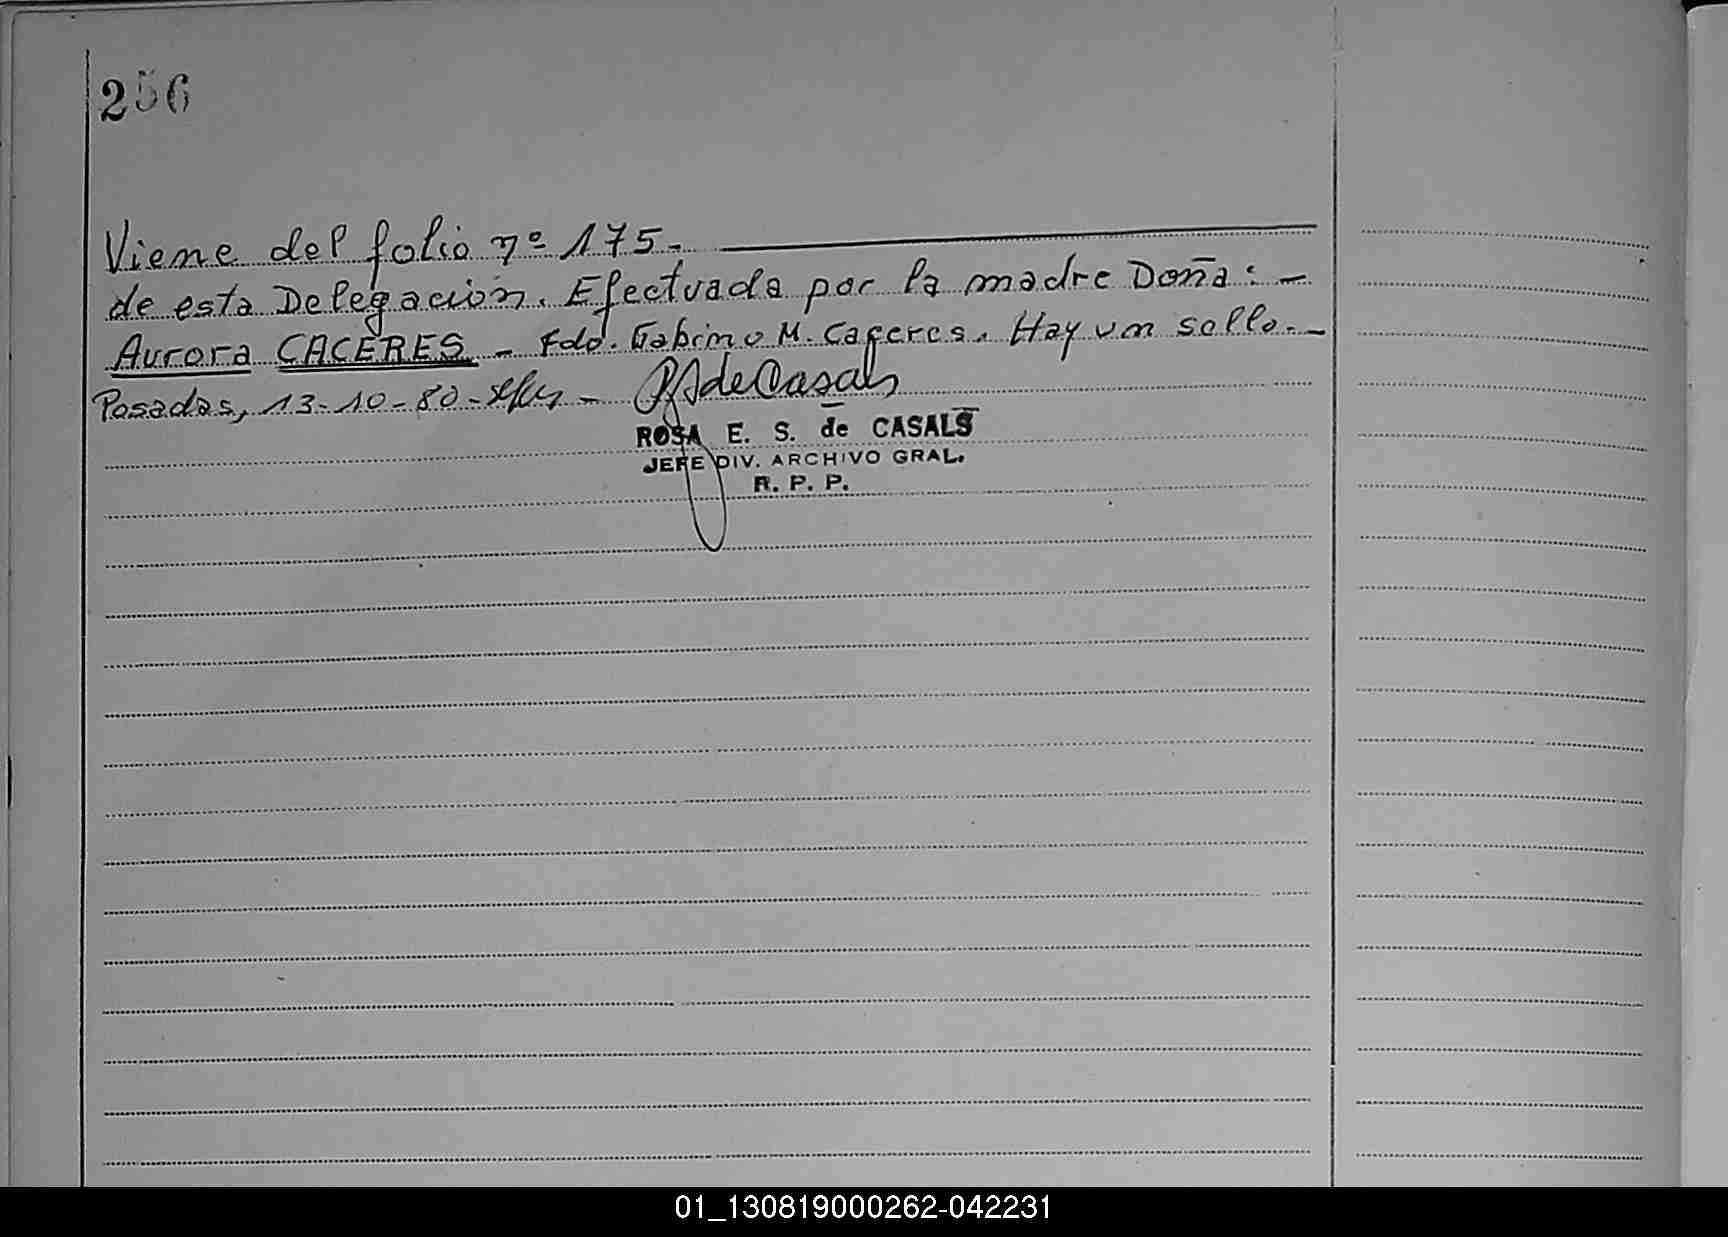 256
Viene del folio nº 175.
de esta Delegación. Efectuada por la madre Doña: -
Aurora CACERES - Fdo. Gabino M. Caceres. Hay un sello. -
Posadas, 13-10-80 -
RSdeCasals
ROSA E. S. de CASALS
JEFE DIV. ARCHIVO GRAL.
R. P. P.
01_130819000262-042231